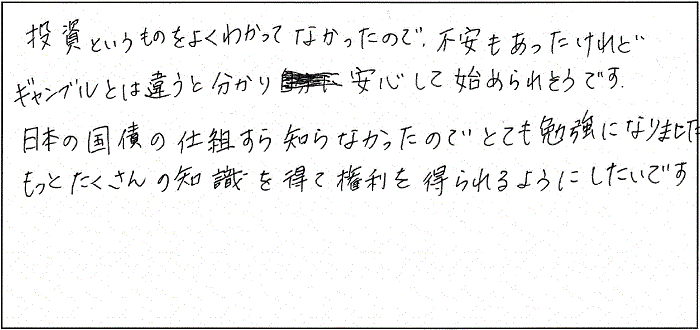 投資というものをよくわかってなかったので、不安もあったけれど
ギャンブルとは違うと分かり 安心して始められそうです.
日本の国債の仕組すら知らなかったのでとても勉強になりました
もっとたくさんの知識を得て権利を得られるようにしたいです